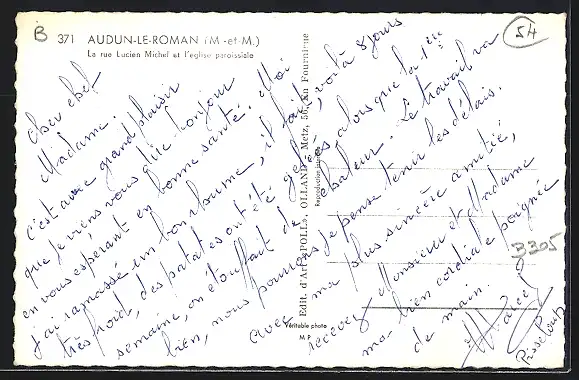 B
371 AUDUN-LE-ROMAN (M.-et-M.)
La rue Lucien Michel et l'église paroissiale
54
Cher ebel
Madame.
c'est avec grand plaisir
que je viens vous dire bonjour
en vous espérant en bonne santé. Moi
j'ai ramassé un bon rhume, il fait
très froid, des patates ont été gelées
semaine, on étouffait de chaleur. Le travail va
bien, nous pourrons je pense tenir les délais.
voilà 8 jours
alors que la 1ère
Avec ma plus sincère amitié,
recevez Monsieur et Madame
ma bien cordiale poignée
de main.
B305
Edit. d'Art POLLS, OLLAND Metz, 56, En Fournirue
Reproduction interdite
Véritable photo
M P